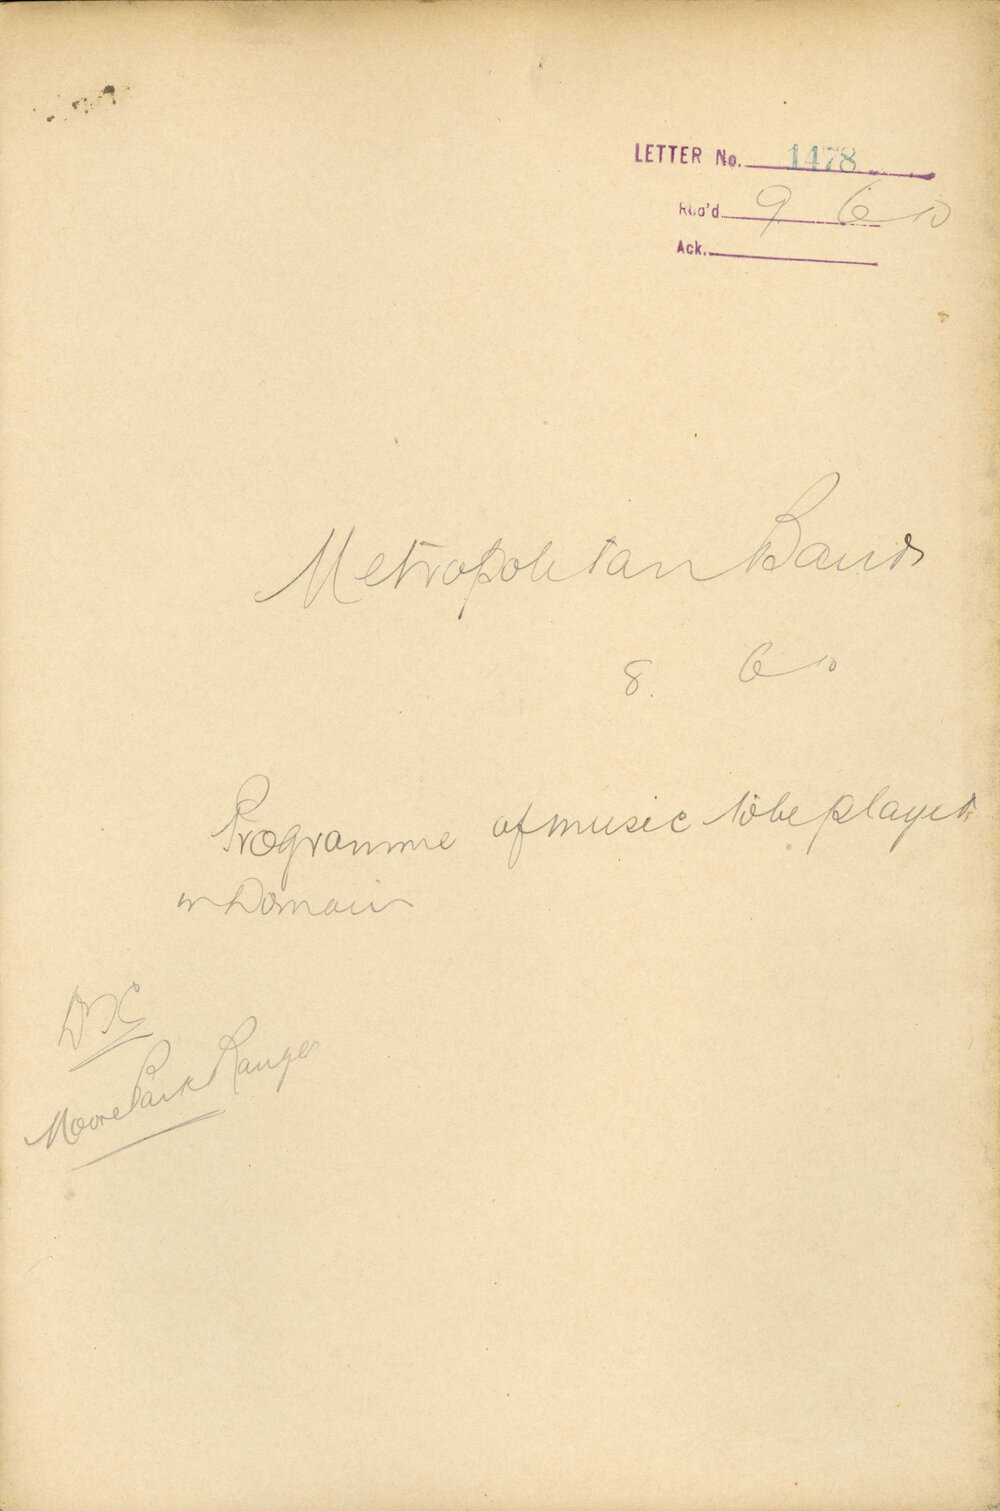 LETTER No. 1478
Rec'd 9 6 10
Ack.
Metropolitan Band
8. 6 10
Programme of music to be played
in Domain
Moore Park Ranger